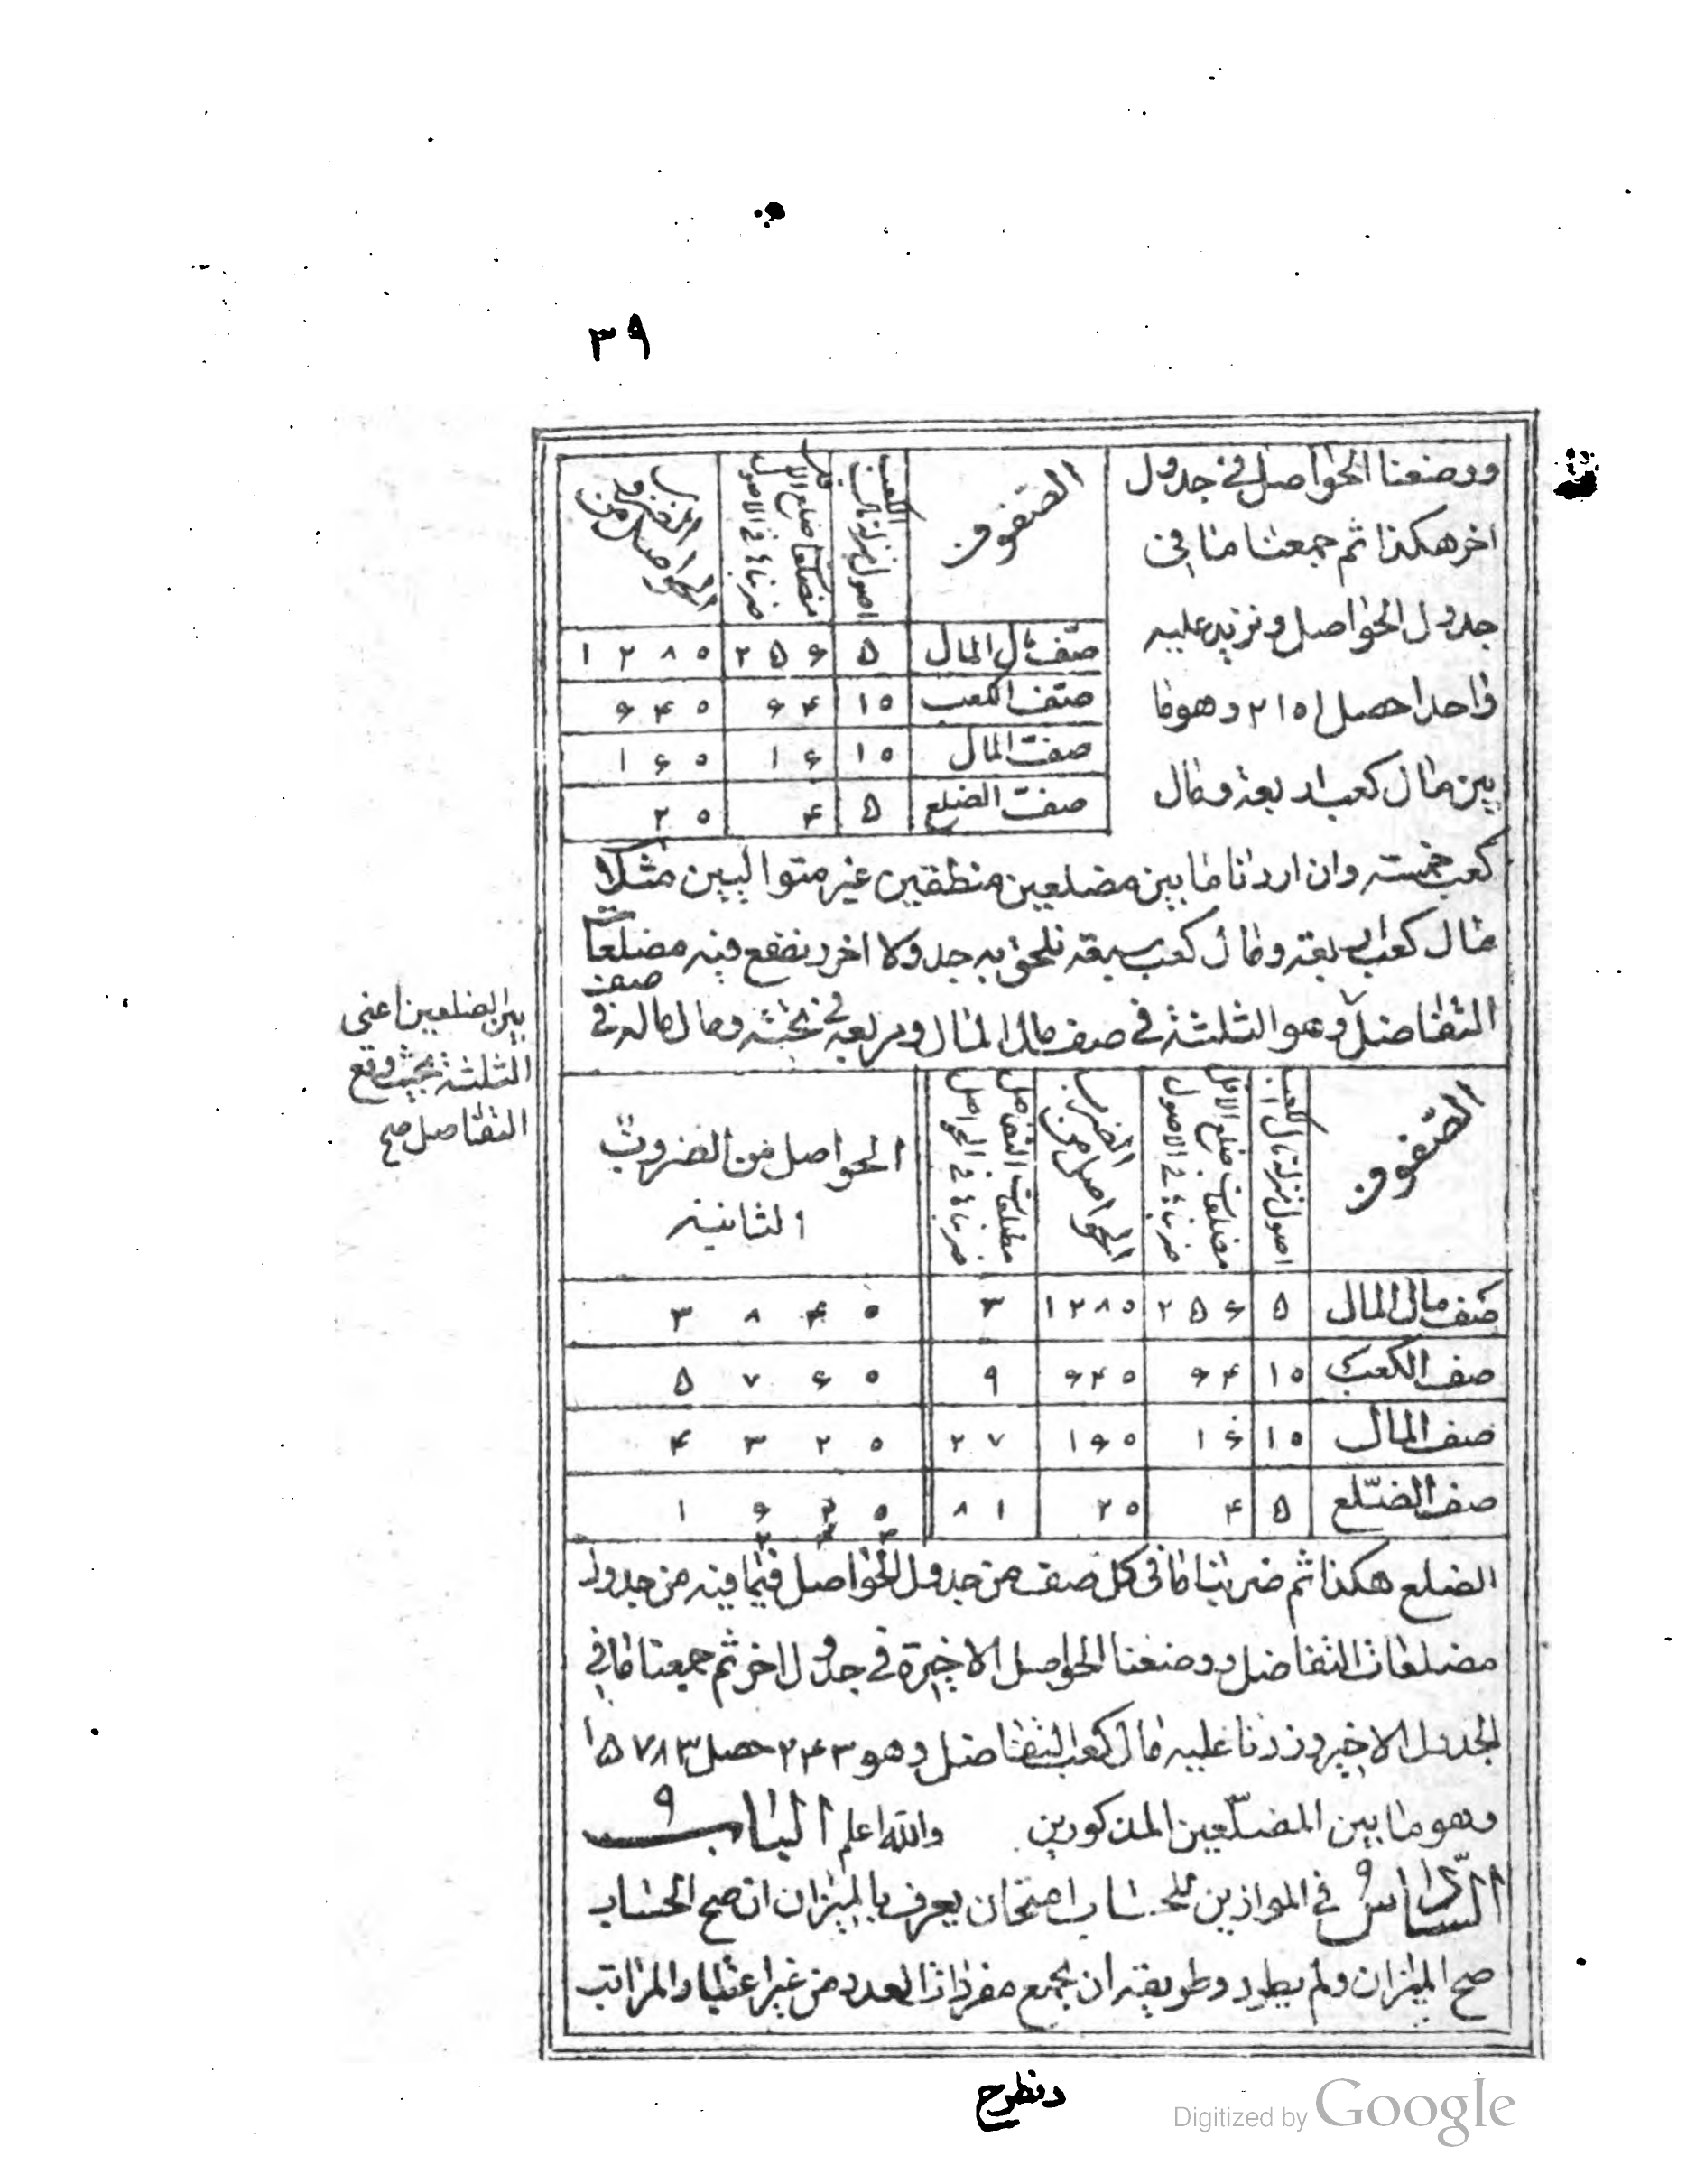 ٣٩
ووضعنا الحواصل في جدول
اخر هكذا ثم جمعنا ما في
جدول الحواصل ونزيد عليه
واحدا حصل ٢١٠١ وهو ما
بين مال كعب اربعة ومال
الصفوف | اصول منزلة مال الكعب | مضلعات ضلع الاقل ضربناه في الاصول | الحواصل من الضروب
صف مال المال | ۵ | ٢۵۶ | ١٢٨٠
صف الكعب | ١٠ | ۶۴ | ۶۴٠
صف المال | ١٠ | ١۶ | ١۶٠
صف الضلع | ۵ | ۴ | ٢٠
كعب خمسة وان اردنا ما بين مضلعين منطقين غير متواليين مثلا
مال كعب اربعة ومال كعب سبعة نلحق به جدولا اخر ونضع فيه مضلعات
التفاضل وهو الثلثة في صف مال المال ومربعه في تحته ومال ماله في صف
بين الضلعين اعنى
الثلثة بحيث وقع
التفاضل صح
الصفوف | اصول منزلة مال الكعب | مضلعات ضلع الاقل ضربناه في الاصول | الحواصل من الضرب | مضلعات التفاضل ضربناه في الحواصل | الحواصل من الضروب الثانية
صف مال المال | ۵ | ٢۵۶ | ١٢٨٠ | ٣ | ٣٨۴٠
صف الكعب | ١٠ | ۶۴ | ۶۴٠ | ٩ | ۵٧۶٠
صف المال | ١٠ | ١۶ | ١۶٠ | ٢٧ | ۴٣٢٠
صف الضلع | ۵ | ۴ | ٢٠ | ٨١ | ١۶٢٠
٢ ۴ ٣
الضلع هكذا ثم ضربنا ما في كل صف من جدول الحواصل فيما فيه من جدول
مضلعات التفاضل ووضعنا الحواصل الاخيرة في جدول اخر ثم جمعنا ما في
الجدول الاخير وزدنا عليه مال كعب التفاضل وهو ٢۴٣ حصل ١۵٧٨٣
وهو ما بين المضلعين المذكورين والله اعلم الباب
السادس في الموازين للحساب امتحان يعرف بالميزان ان صح الحساب
صح الميزان ولم يطرد وطريقته ان يجمع مفردات العدد من غير اعتبار المراتب
ونطرح
Digitized by Google